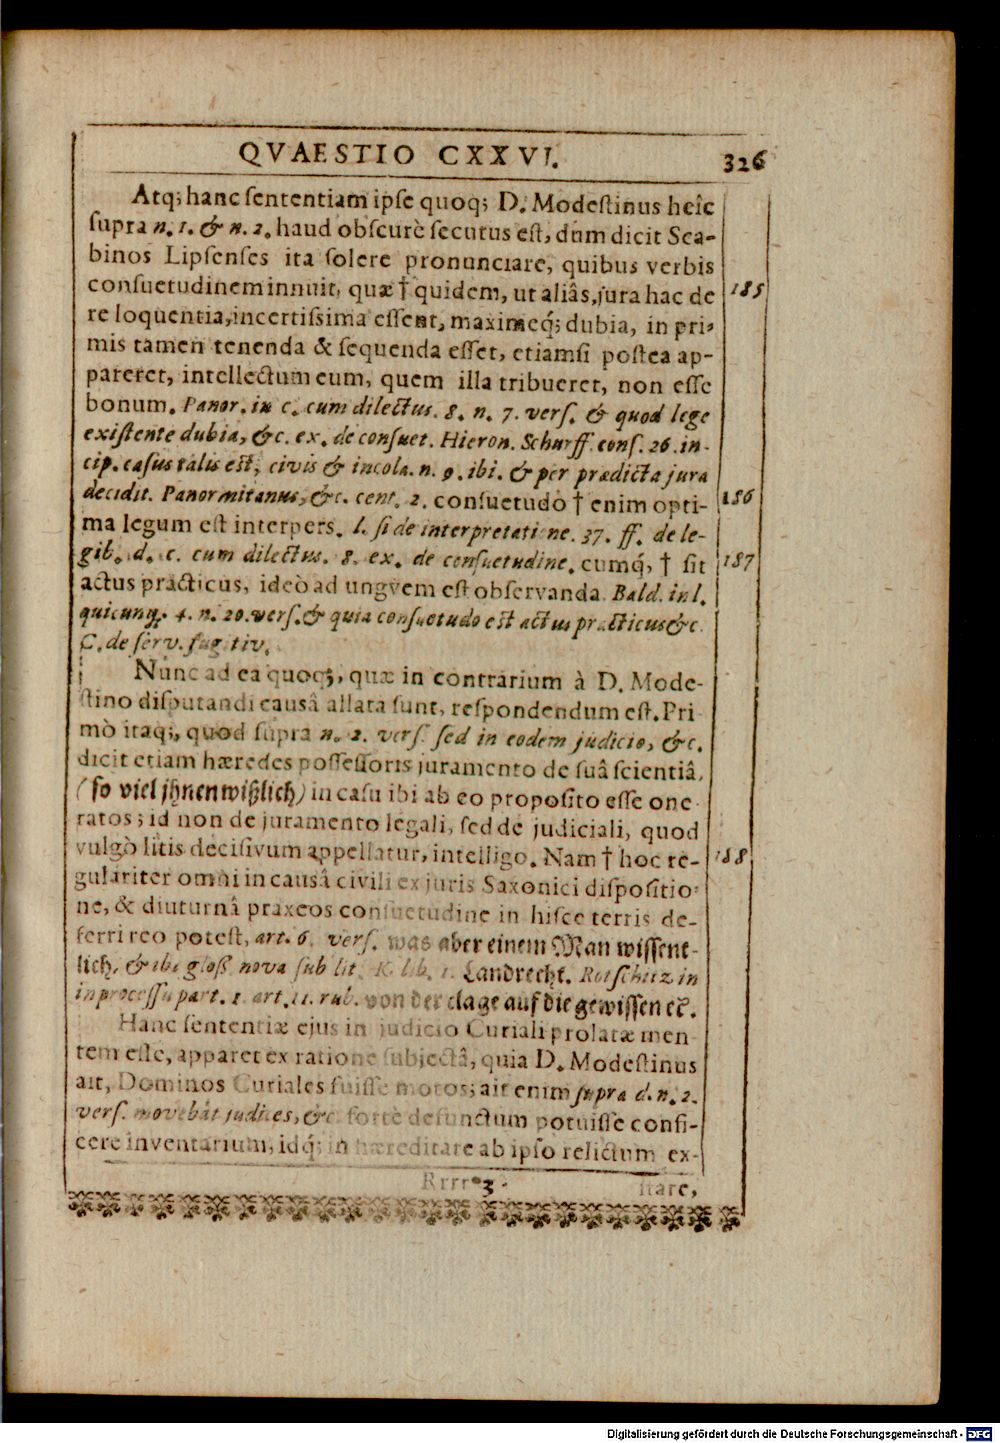 QVAESTIO CXXVI.
326
Atq; hanc sententiam ipse quoq; D. Modestinus heîc
supra n. 1. & n. 2. haud obscurè secutus est, dum dicit Sca-
binos Lipsenses ita solere pronunciare, quibus verbis
consuetudinem innuit, quæ † quidem, ut aliâs, jura hac de
185
re loquentia, incertissima essent, maximeq́; dubia, in pri-
mis tamen tenenda & sequenda esset, etiamsi postea ap-
pareret, intellectum eum, quem illa tribueret, non esse
bonum. Panor. in c. cum dilectus. 8. n. 7. vers. & quod lege
existente dubia, &c. ex. de consuet. Hieron. Schurff. cons. 26. in-
cip. casus talis est, civis & incola. n. 9. ibi. & per prædicta jura
decidit. Panormitanus, &c. cent. 2. consuetudo † enim opti-
186
ma legum est interpers. l. si de interpretatine. 37. ff. de le-
gib. d. c. cum dilectus. 8. ex. de consuetudine. cumq́, † sit
187
actus practicus, ideò ad ungvem est observanda. Bald. in l.
quicunq. 4. n. 20. vers. & quia consuetudo est actus practicus &c.
C. de serv. fugitiv.
Nunc ad ea quoq;, quæ in contrarium à D. Mode-
stino disputandi causâ allata sunt, respondendum est. Pri
mò itaq;, quod supra n. 2. vers. sed in eodem judicio, &c.
dicit etiam hæredes possessoris juramento de suâ scientiâ,
(so viel jhnen wißlich) in casu ibi ab eo proposito esse one-
ratos; id non de juramento legali, sed de judiciali, quod
vulgò litis decisivum appellatur, intelligo. Nam † hoc re-
188
gulariter omni in causâ civili ex juris Saxonici dispositio-
ne, & diuturnâ praxeos consuetudine in hisce terris de-
ferri reo potest, art. 6. vers. was aber einem Man wissent-
lich, & ibi gloß. nova sub lit. K. lib. 1. Landrecht. Rotschitz in
in processu part. 1. art. 11. rub. von der clage auf die gewissen ec.
Hanc sententiæ ejus in judicio Curiali prolatæ men
tem esse, apparet ex ratione subjectâ, quia D. Modestinus
ait, Dominos Curiales fuisse motos; ait enim supra d. n. 2.
vers. movebāt judices, &c. fortè defunctum potuisse confi-
cere inventarium, idq́; in hæreditate ab ipso relictum ex-
Rrrr 3
stare,
Digitalisierung gefördert durch die Deutsche Forschungsgemeinschaft - DFG